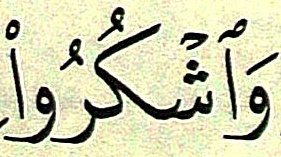 وَٱشْكُرُوا۟